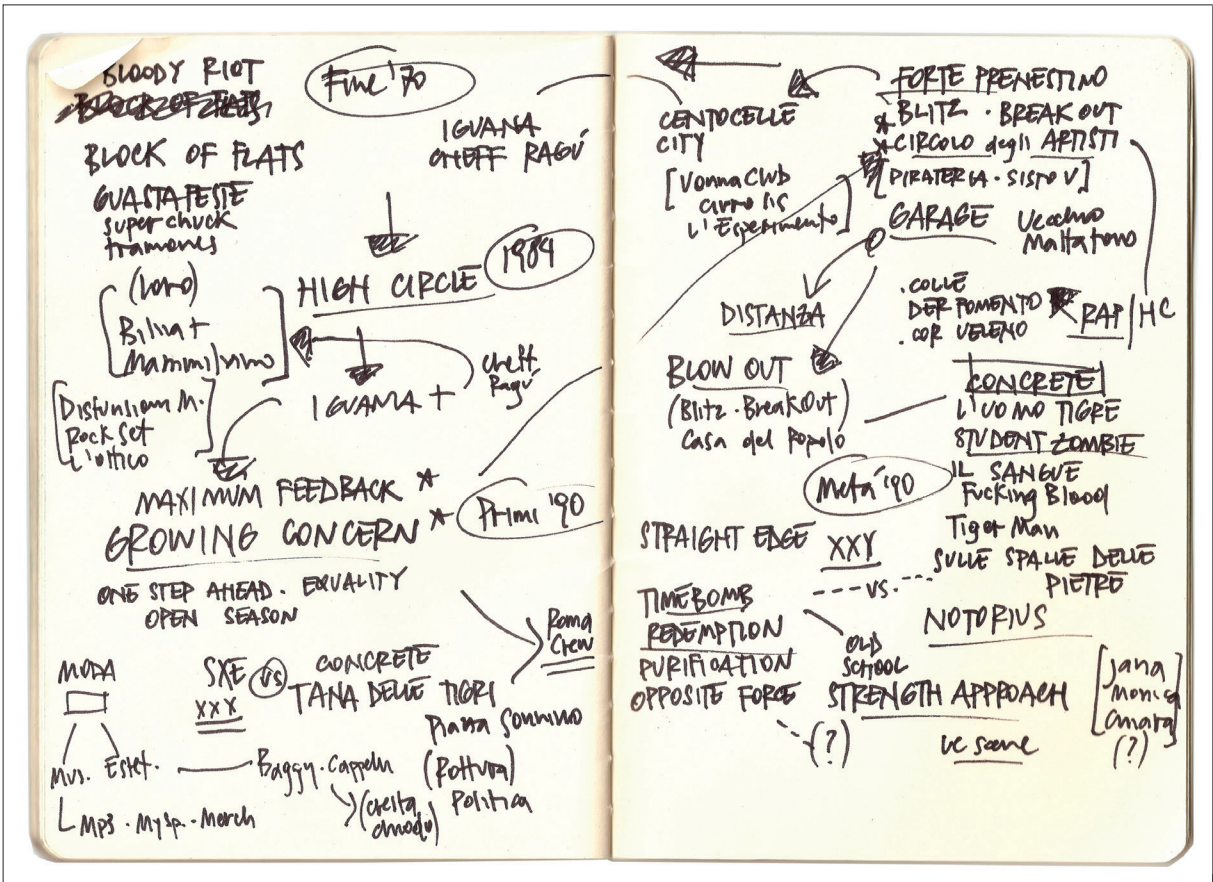 BLOODY RIOT
BLOCK OF FLATS
BLOCK OF FLATS
GUASTAFESTE
super chuck
tramones
Fine '70
IGUANA
CHEFF RAGÚ
HIGH CIRCLE
1984
(loro)
Bilnat
Mammi/nimo
IGUANA +
cheff
Ragú
Distunsiam M.
Rock Set
L'ottico
MAXIMUM FEEDBACK *
GROWING CONCERN *
Primi '90
ONE STEP AHEAD. EQUALITY
OPEN SEASON
Roma
Crew
MODA
SXE VS CONCRETE
XXX TANA DELLE TIGRI
Piazza Sonnino
Mus. Estet. Baggy. Cappelli
(Rottura)
Politica
(scelta
Mp3 . MySp. . Merch
CENTOCELLE
CITY
[Vonna Club
L'Esperimento]
FORTE PRENESTINO
* BLITZ . BREAK OUT
* CIRCOLO degli ARTISTI
[PIRATERIA . SISTO V]
GARAGE
Vecchio
Mattatoio
DISTANZA
. COLLE
DER FOMENTO
. COR VELENO
RAP/HC
BLOW OUT
(Blitz . BreakOut)
Casa del Popolo
CONCRETE
L'UOMO TIGRE
STUDENT ZOMBIE
IL SANGUE
Fucking Blood
Tiger Man
SULLE SPALLE DELLE
PIETRE
Metá '90
STRAIGHT EDGE XXX
--- vs. ---
TIMEBOMB
REDEMPTION
PURIFICATION
OPPOSITE FORCE
OLD
SCHOOL
STRENGTH APPROACH
NOTORIUS
(?)
[Jana
Monica
(?)